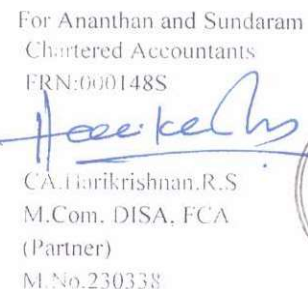 For Ananthan and Sundaram
Chartered Accountants
FRN:000148S
CA.Harikrishnan.R.S
M.Com, DISA, FCA
(Partner)
M.No.230338